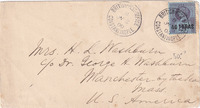 BRITISH
CONSTANTINOPLE
80 PARAS
Mrs. H. L. Washburn
c/o Dr. George H. Washburn
Manchester by the Sea
Mass
U. S. America